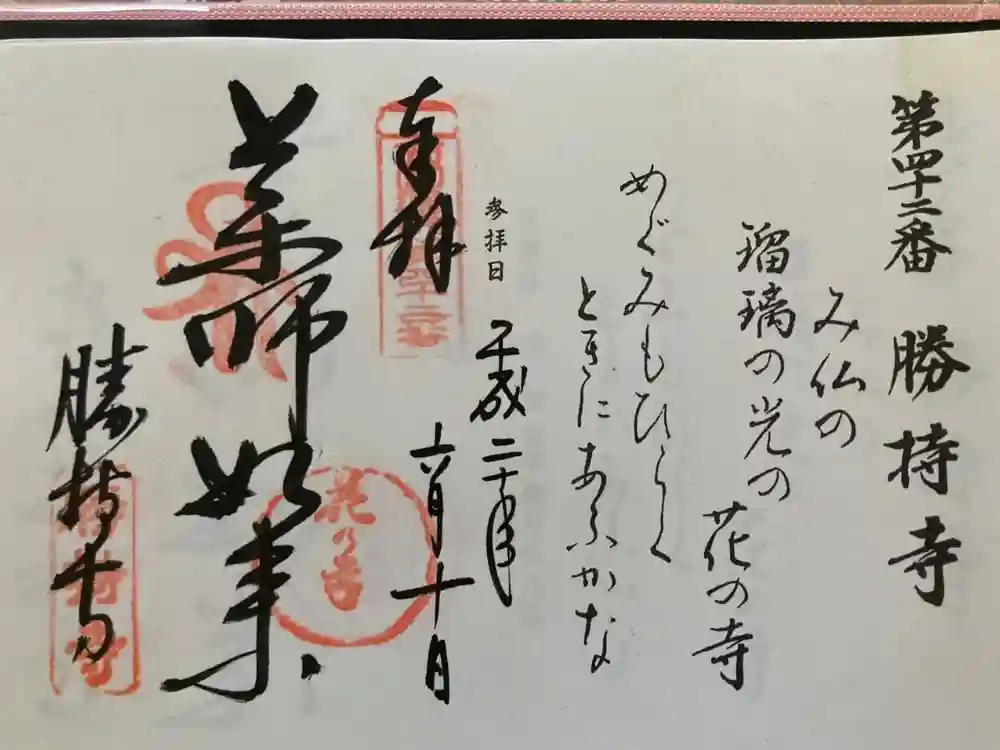 第四十二番 勝持寺
み仏の
瑠璃の光の
花の寺
めぐみもひらく
ときにあふかな
参拝日
平成二十年
六月十日
奉拝
薬師如来
勝持寺
花の寺
勝持寺